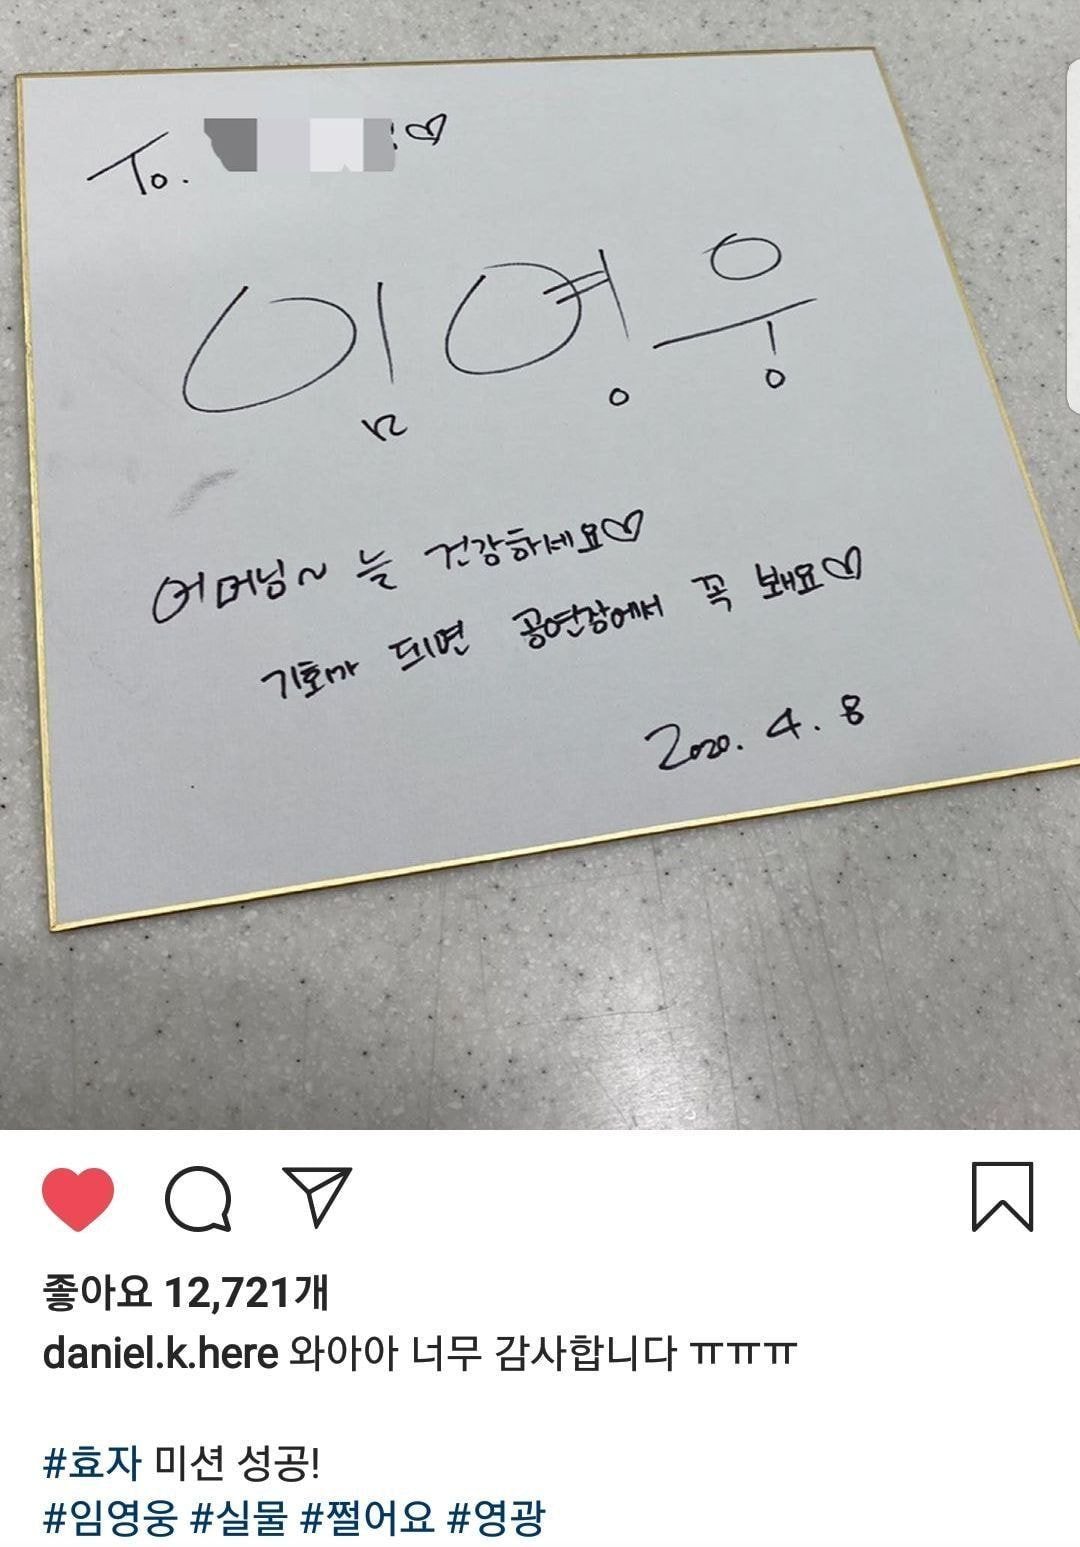 To. :♡
임영웅
어머님~ 늘 건강하세요♡
기회가 되면 공연장에서 꼭 봬요♡
2020. 4. 8
좋아요 12,721개
daniel.k.here 와아아 너무 감사합니다 ㅠㅠㅠ
#효자 미션 성공!
#임영웅 #실물 #쩔어요 #영광